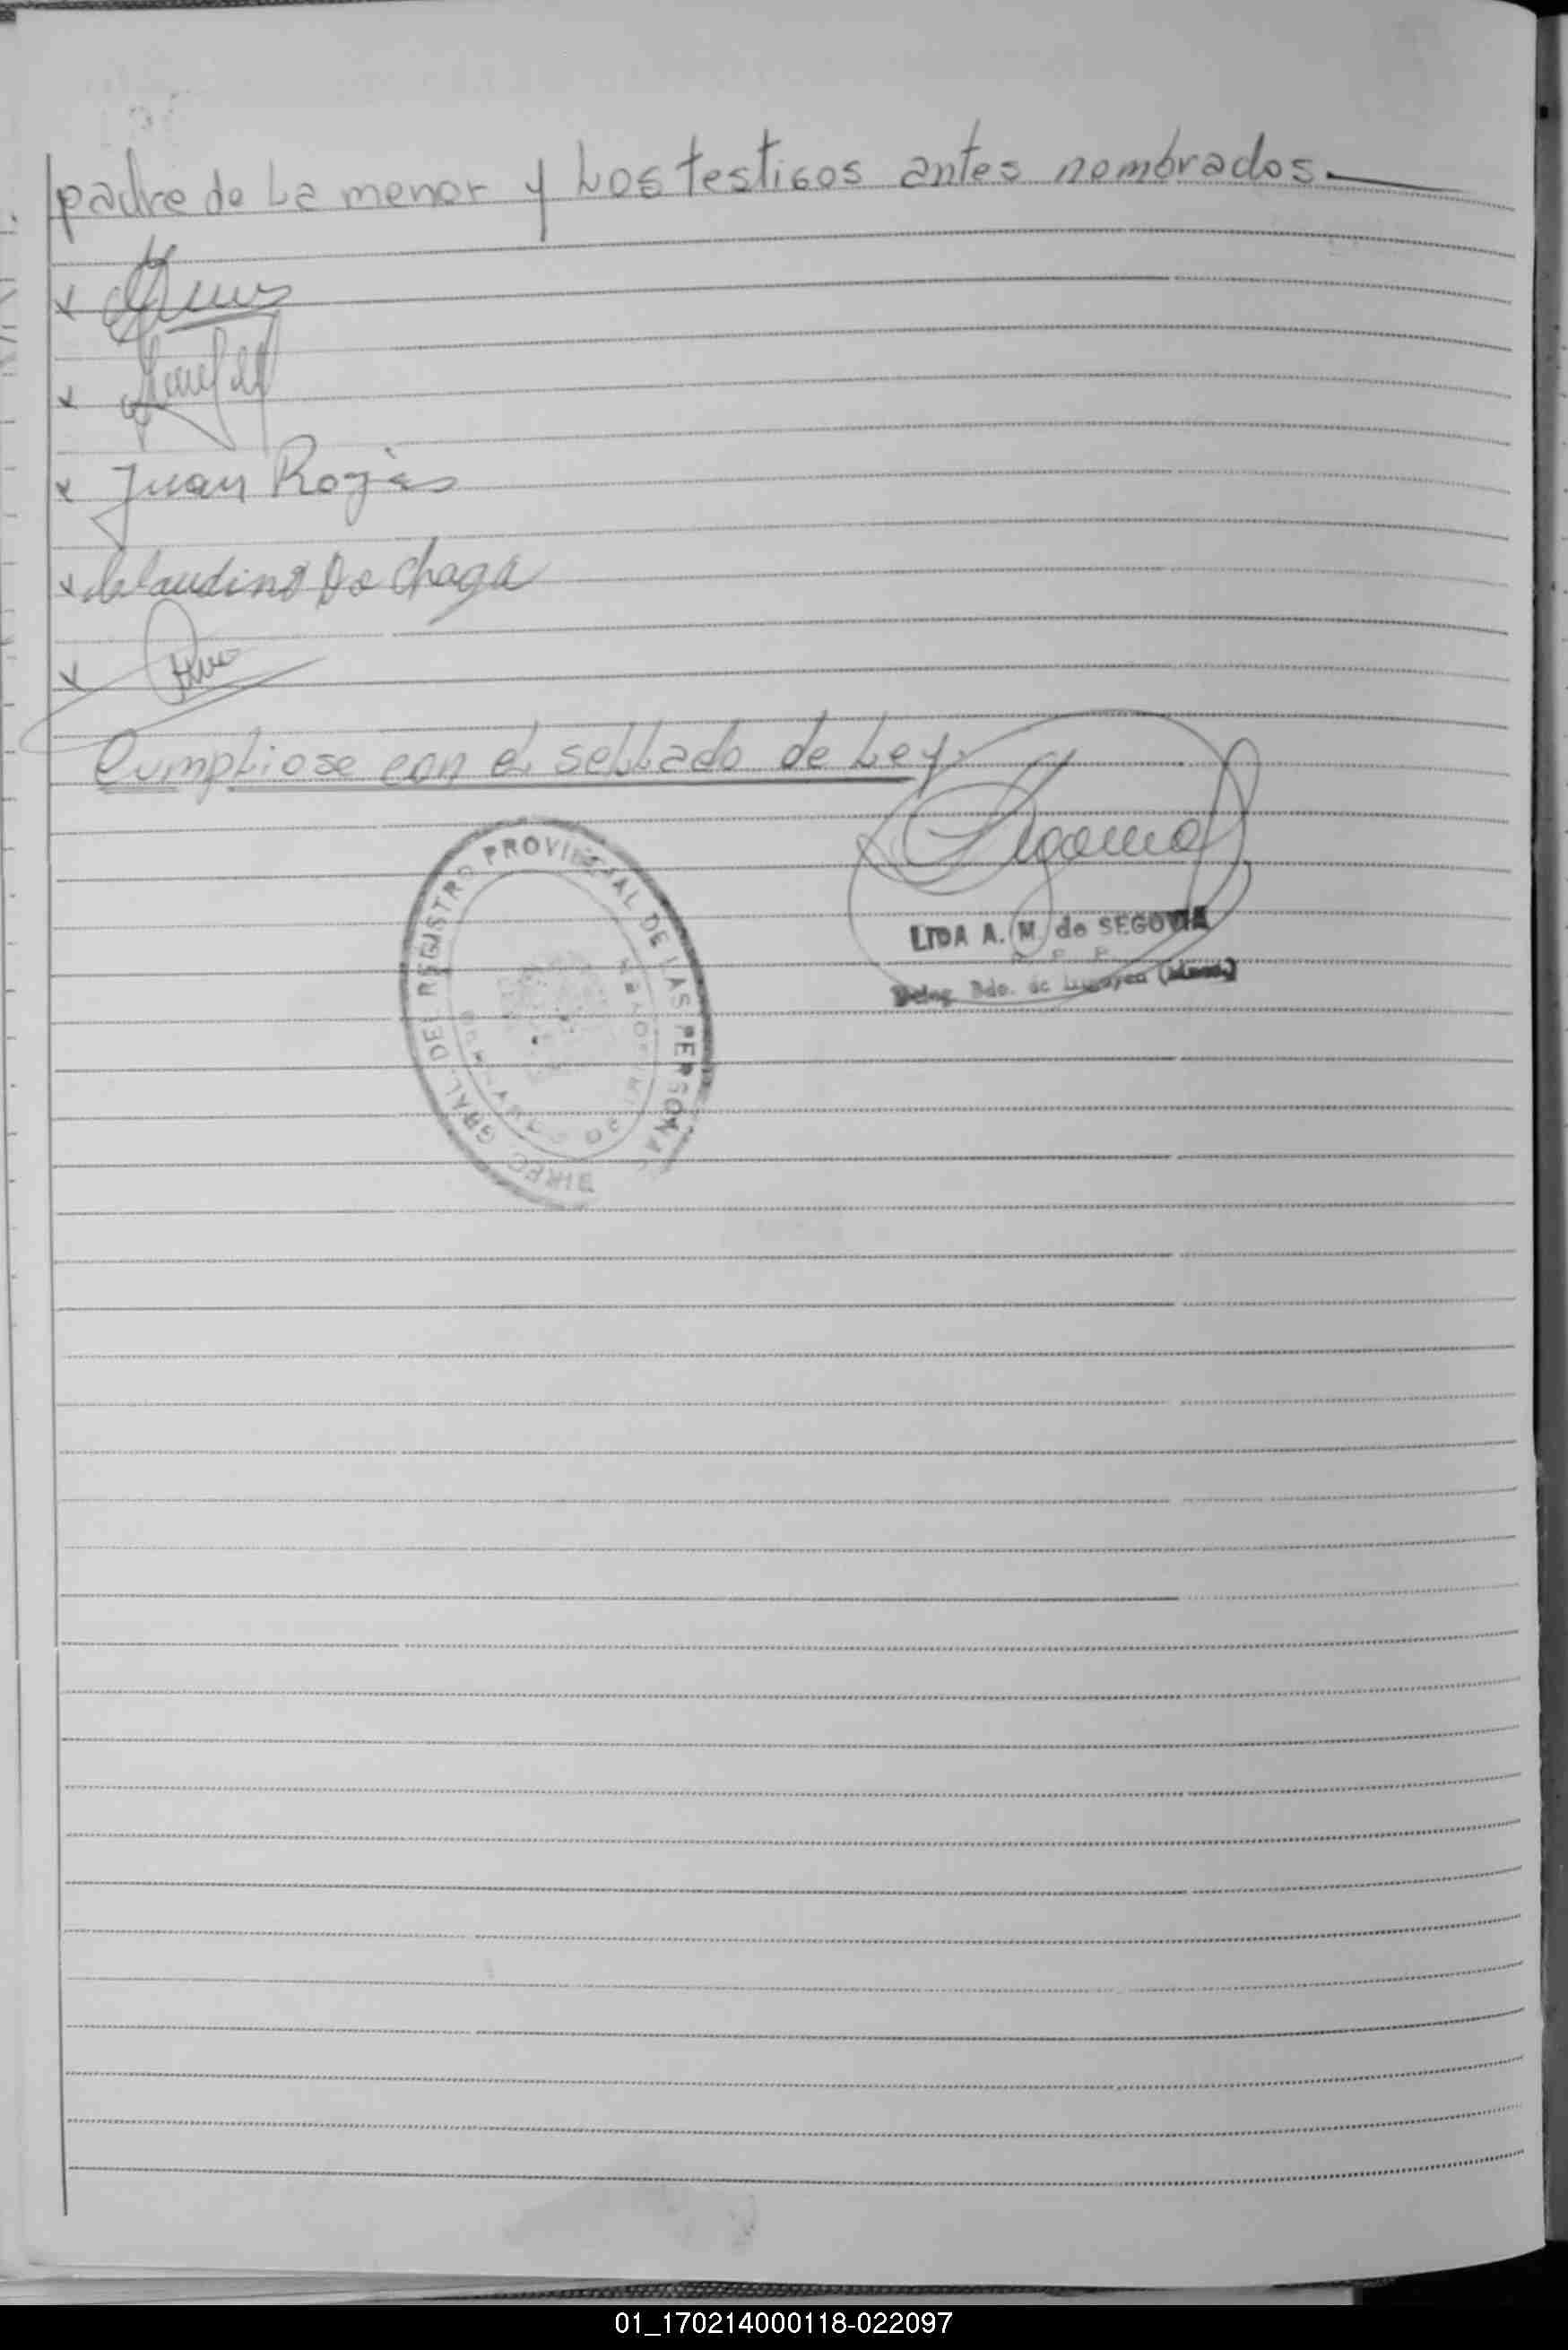 padre de La menor y Los testigos antes nombrados.
x
x
x Juan Rojas
x Claudino Da Chaga
x
Cumpliose con el sellado de Ley.
DIREC. GRAL. DEL REGISTRO PROVINCIAL DE LAS PERSONAS
LIDA A. M. de SEGOVIA
Deleg. Bdo. de
01_170214000118-022097